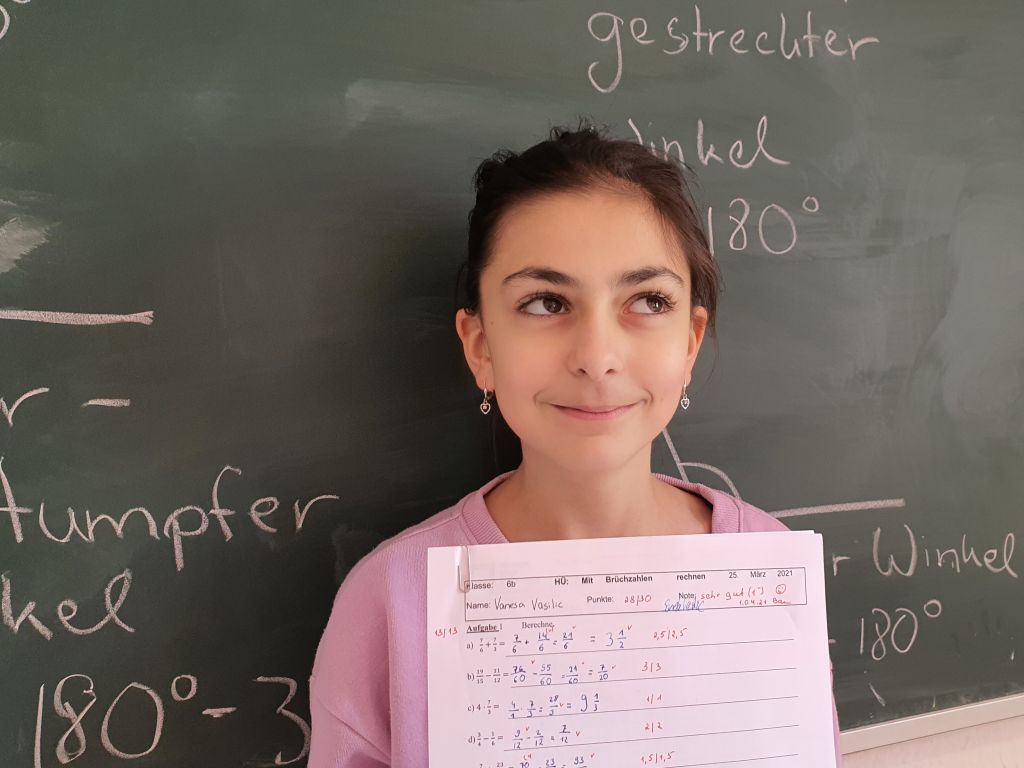 gestrechter
Winkel
180°
r -
tumpfer
kel
180° - 3
r Winkel
- 180°
Klasse: 6b HÜ: Mit Brüchzahlen rechnen 25. März 2021
Name: Vanesa Vasilic Punkte: 28/30 Note: sehr gut (1)
1.04.21
13/13 Aufgabe 1 Berechne.
a) 7/6 + 7/3 = 7/6 + 14/6 = 21/6 = 3 1/2 2,5/2,5
b) 19/15 - 11/12 = 76/60 - 55/60 = 21/60 = 7/20 3/3
c) 4 · 7/3 = 4/1 · 7/3 = 28/3 = 9 1/3 1/1
d) 3/4 - 1/6 = 9/12 - 2/12 = 7/12 2/2
1,5/1,5